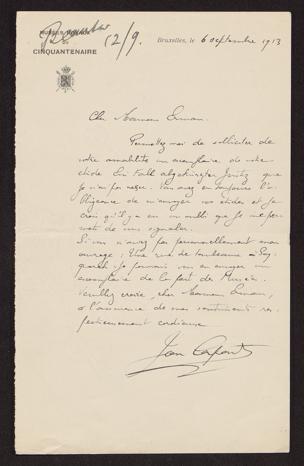 CINQUANTENAIRE
12/9.
Bruxelles, le 6 septembre 1913
Cher Monsieur Erman.
Permettez moi de solliciter de
votre amabilité un exemplaire de votre
étude Ein Fall abgekürzter Justiz que
je n'ai pas reçue. Vous avez eu toujours l'o-
bligeance de m'envoyer vos études et je
crois qu'il y a eu un oubli que je me per-
mets de vous signaler.
Si vous n'avez pas personnellement mon
ouvrage: Une rue de tombeaux à Saq-
qarah, je pourrais vous en envoyer un
exemplaire de la part du Musée.
Veuillez croire, cher Monsieur Erman,
à l'assurance de mes sentiments res-
pectueusement cordiaux
Jean Capart